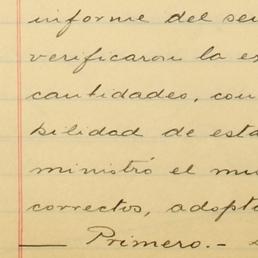 informe del se
verificaron la e
cantidades, con
bilidad de esta
ministró el mu
correctos, adopta
Primero.-